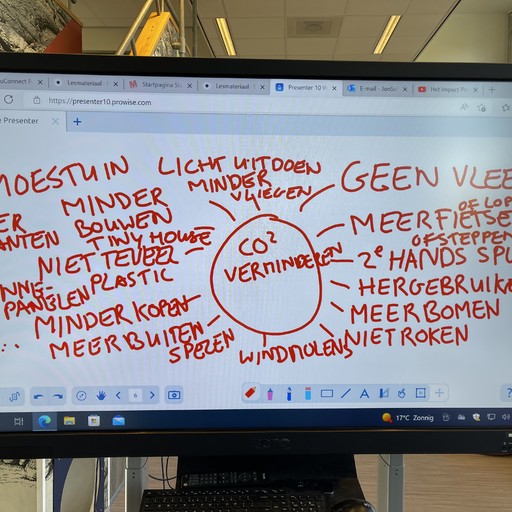 Lesmateriaal
Startpagina
Lesmateriaal
Presenter 10
E-mail - Jan
Het Impact
https://presenter10.prowise.com
Presenter
MOESTUIN
LICHT UITDOEN
MINDER
VLIEGEN
GEEN VLEE
MINDER
BOUWEN
TINY HOUSE
NIET TEVEEL
PLASTIC
PANELEN
MINDER KOPEN
MEER BUITEN
SPELEN
WINDMOLENS
CO²
VERMINDEREN
MEER FIETSE
OF LOP
OF STEPPEN
2e HANDS SPU
HERGEBRUIKE
MEER BOMEN
NIET ROKEN
6
17°C Zonnig